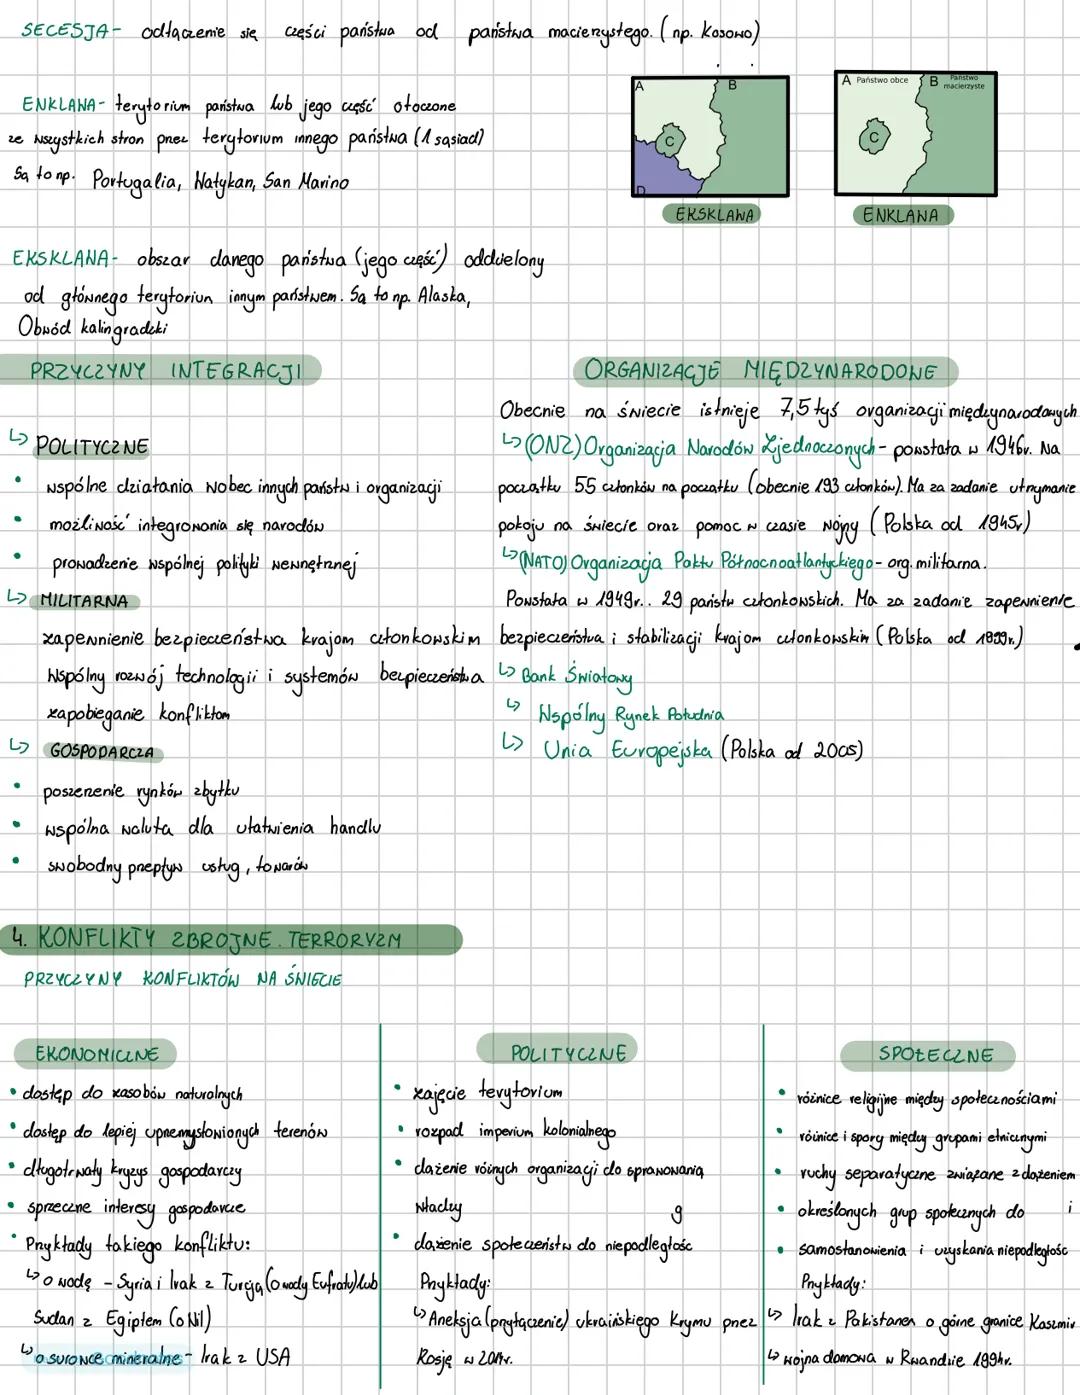 SECESJA- odłączenie się części państwa od państwa macierzystego. (np. Kosowo)
ENKLAWA- terytorium państwa lub jego część otoczone
ze wszystkich stron przez terytorium innego państwa (1 sąsiad)
Są to np. Portugalia, Watykan, San Marino
A
B
C
D
EKSKLAWA
A Państwo obce
B Państwo macierzyste
C
ENKLAWA
EKSKLAWA- obszar danego państwa (jego część) oddzielony
od głównego terytorium innym państwem. Są to np. Alaska,
Obwód kalingradzki
PRZYCZYNY INTEGRACJI
↳ POLITYCZNE
• wspólne działania wobec innych państw i organizacji
• możliwość integrowania się narodów
• prowadzenie wspólnej polityki wewnętrznej
↳ MILITARNA
zapewnienie bezpieczeństwa krajom członkowskim
Wspólny rozwój technologii i systemów bezpieczeństwa
zapobieganie konfliktom
↳ GOSPODARCZA
• poszerzenie rynków zbytku
• wspólna waluta dla ułatwienia handlu
• swobodny przepływ usług, towarów
ORGANIZACJE MIĘDZYNARODOWE
Obecnie na świecie istnieje 7,5 tyś organizacji międzynarodowych
↳(ONZ) Organizacja Narodów Zjednoczonych- powstała w 1946r. Na
początku 55 członków na początku (obecnie 193 członków). Ma za zadanie utrzymanie
pokoju na świecie oraz pomoc w czasie wojny (Polska od 1945r)
↳(NATO) Organizacja Paktu Północnoatlantyckiego- org. militarna.
Powstała w 1949r.. 29 państw członkowskich. Ma za zadanie zapewnienie
bezpieczeństwa i stabilizacji krajom członkowskim (Polska od 1999r.)
↳ Bank Światowy
↳ Wspólny Rynek Południa
↳ Unia Europejska (Polska od 2005)
4. KONFLIKTY ZBROJNE. TERRORYZM
PRZYCZYNY KONFLIKTÓW NA ŚWIECIE
EKONOMICZNE
• dostęp do zasobów naturalnych
• dostęp do lepiej uprzemysłowionych terenów
• długotrwały kryzys gospodarczy
• sprzeczne interesy gospodarcze
• Przykłady takiego konfliktu:
↳ o wodę - Syria i Irak z Turcją (o wody Eufratu) lub
Sudan z Egiptem (o Nil)
↳ o surowce mineralne - Irak z USA
POLITYCZNE
• zajęcie terytorium
• rozpad imperium kolonialnego
• dążenie różnych organizacji do sprawowania
władzy g
• dążenie społeczeństw do niepodległość
Przykłady:
↳ Aneksja (przyłączenie) ukraińskiego Krymu przez
Rosję w 2014r.
SPOŁECZNE
• różnice religijne między społecznościami
• różnice i spory między grupami etnicznymi
• ruchy separatyczne związane z dążeniem
• określonych grup społecznych do i
• samostanowienia i uzyskania niepodległość
Przykłady:
↳ Irak z Pakistanen o górne granice Kaszmir
↳ wojna domowa w Rwandzie 1994r.